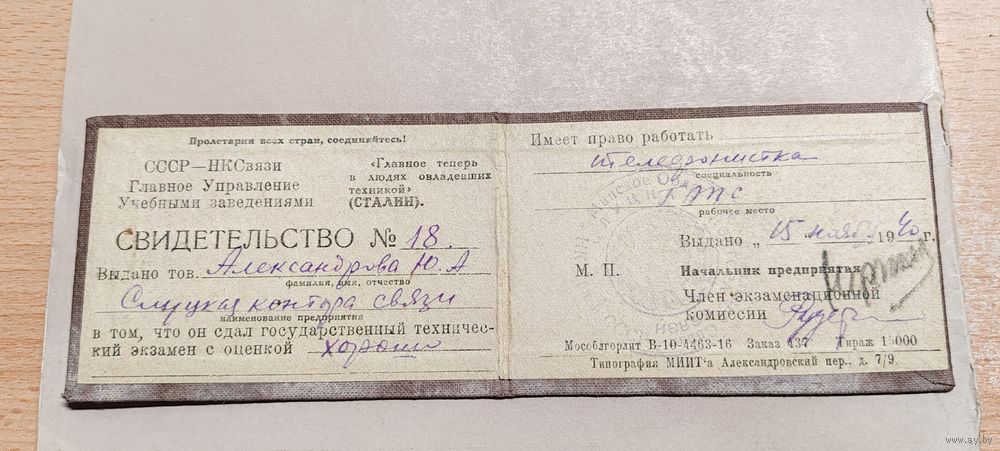 Пролетарии всех стран, соединяйтесь!
СССР—НКСвязи
Главное Управление
Учебными заведениями
«Главное теперь
в людях овладевших
техникой»
(СТАЛИН).
СВИДЕТЕЛЬСТВО № 18.
Выдано тов. Александрова Ю. А
фамилия, имя, отчество
Слуцкая контора связи
наименование предприятия
в том, что он сдал государственный техничес-
кий экзамен с оценкой хорошо
Имеет право работать
телефонистка
специальность
рабочее место
Выдано „15 ноября 1940 г.
М. П.
Начальник предприятия
Член экзаменационной
комиссии
Мособлгорлит В-10-4463-16 Заказ 437 Тираж 15000
Типография МИИТ'а Александровский пер., д. 7/9
www.ay.by